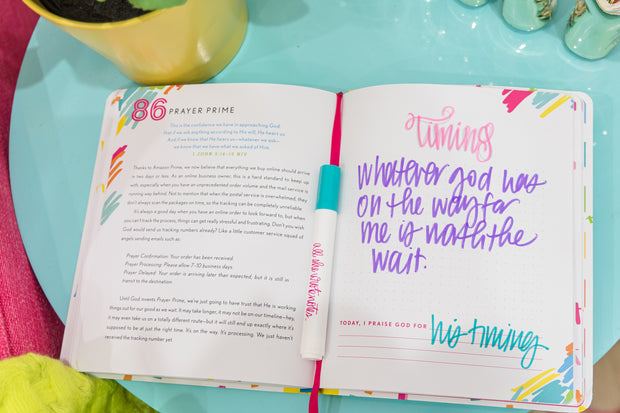 86 PRAYER PRIME
This is the confidence we have in approaching God:
that if we ask anything according to His will, He hears us.
And if we know that He hears us—whatever we ask—
we know that we have what we asked of Him.
1 JOHN 5:14-15 NIV
Thanks to Amazon Prime, we now believe that everything we buy online should arrive
in two days or less. As an online business owner, this is a hard standard to keep up
with, especially when you have an unprecedented order volume and the mail service is
running way behind. Not to mention that when the postal service is overwhelmed, they
don't always scan the packages on time, so the tracking can be completely unreliable.
It's always a good day when you have an online order to look forward to, but when
you can't track the process, things can get really stressful and frustrating. Don't you wish
God would send us tracking numbers already? Like a little customer service voiced of
angels sending emails such as:
Prayer Confirmation: Your order has been received.
Prayer Processing: Please allow 7–10 business days.
Prayer Delayed: Your order is arriving later than expected, but it is still in
transit to the destination.
Until God invents Prayer Prime, we're just going to have trust that He is working
things out for our good as we wait. It may take longer, it may not be on our timeline—hey,
it may even take us on a totally different route—but it will still end up exactly where it's
supposed to be at just the right time. It's on the way. It's processing. We just haven't
received the tracking number yet.
timing
Whatever god has
on the way for
me is worth the
wait.
TODAY, I PRAISE GOD FOR his timing